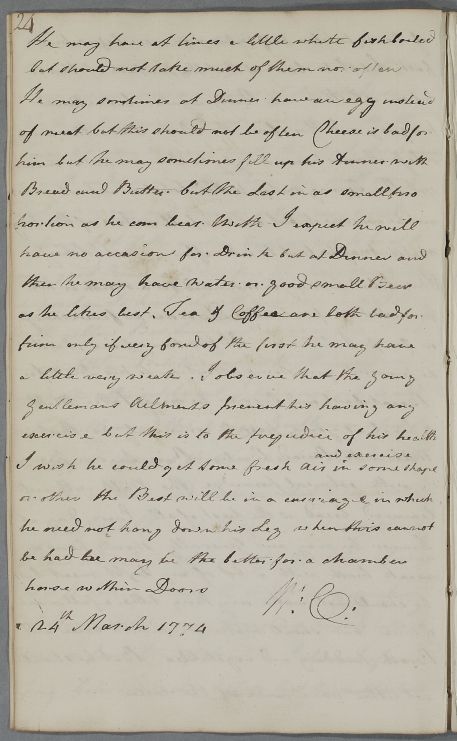 24
He may have at times a little white fish boiled
but should not take much of them nor often
He may somtimes at Dinner have an egg instead
of meat but this should not be often Cheese is bad for
him but he may sometimes fill up his dinner with
Bread and Butter but the last in as small pro
portion as he can bear with I expect he will
have no accasion for Drink but at Dinner and
then he may have water or good small Beer
as he likes best. Tea & Coffee are both bad for
him only if very fond of the first he may have
a little very weak. I observe that the young
Gentlemans Ailments prevent his having any
exercise but this is to the prejudice of his health
and exercise
I wish he could get some fresh air in some shape
or other the Best will be in a carriage in which
he need not hang down his Leg when this cannot
be had he may be the better for a chamber
horse within Doors
W: C:
24th March 1774